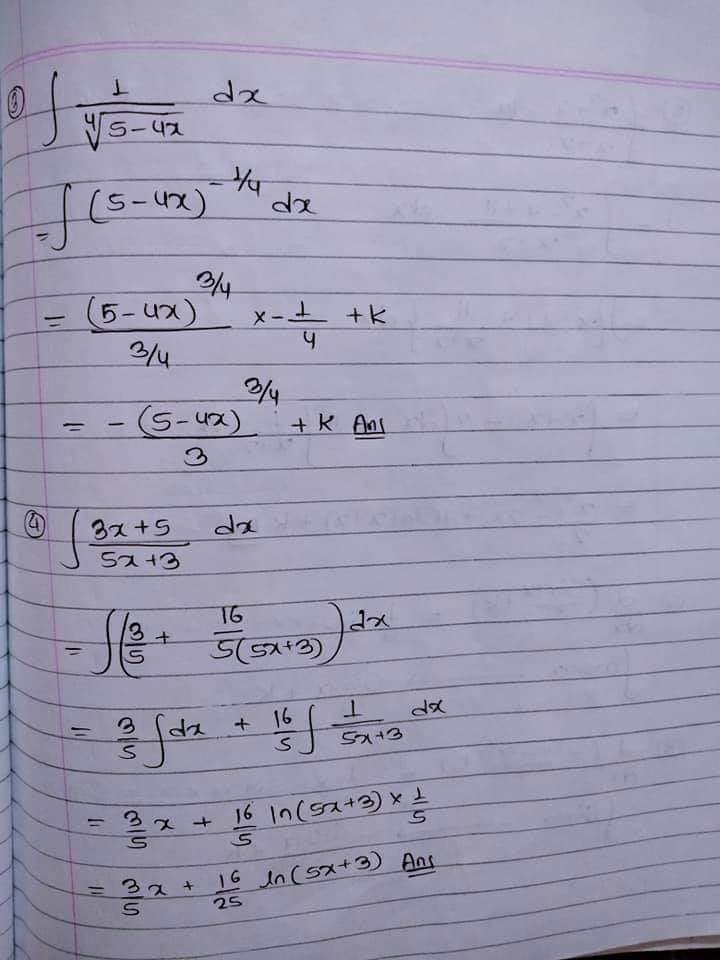 ③ ∫ 1/∜(5-4x) dx
= ∫ (5-4x)^(-1/4) dx
= (5-4x)^(3/4) / (3/4) × -1/4 + k
= - (5-4x)^(3/4) / 3 + k Ans
④ ∫ (3x+5)/(5x+3) dx
= ∫ (3/5 + 16/(5(5x+3))) dx
= 3/5 ∫ dx + 16/5 ∫ 1/(5x+3) dx
= 3/5 x + 16/5 ln(5x+3) × 1/5
= 3/5 x + 16/25 ln(5x+3) Ans